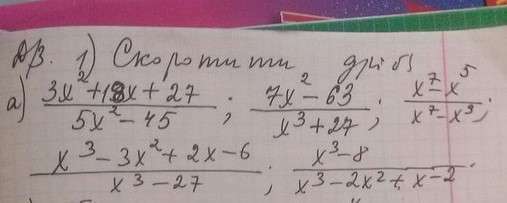 ДЗ. 1) Скоротити дріб
а) (3x²+18x+27)/(5x²-45) ; (7x²-63)/(x³+27) ; (x⁷-x⁵)/(x⁷-x³) ;
(x³-3x²+2x-6)/(x³-27) ; (x³-8)/(x³-2x²+x-2) .